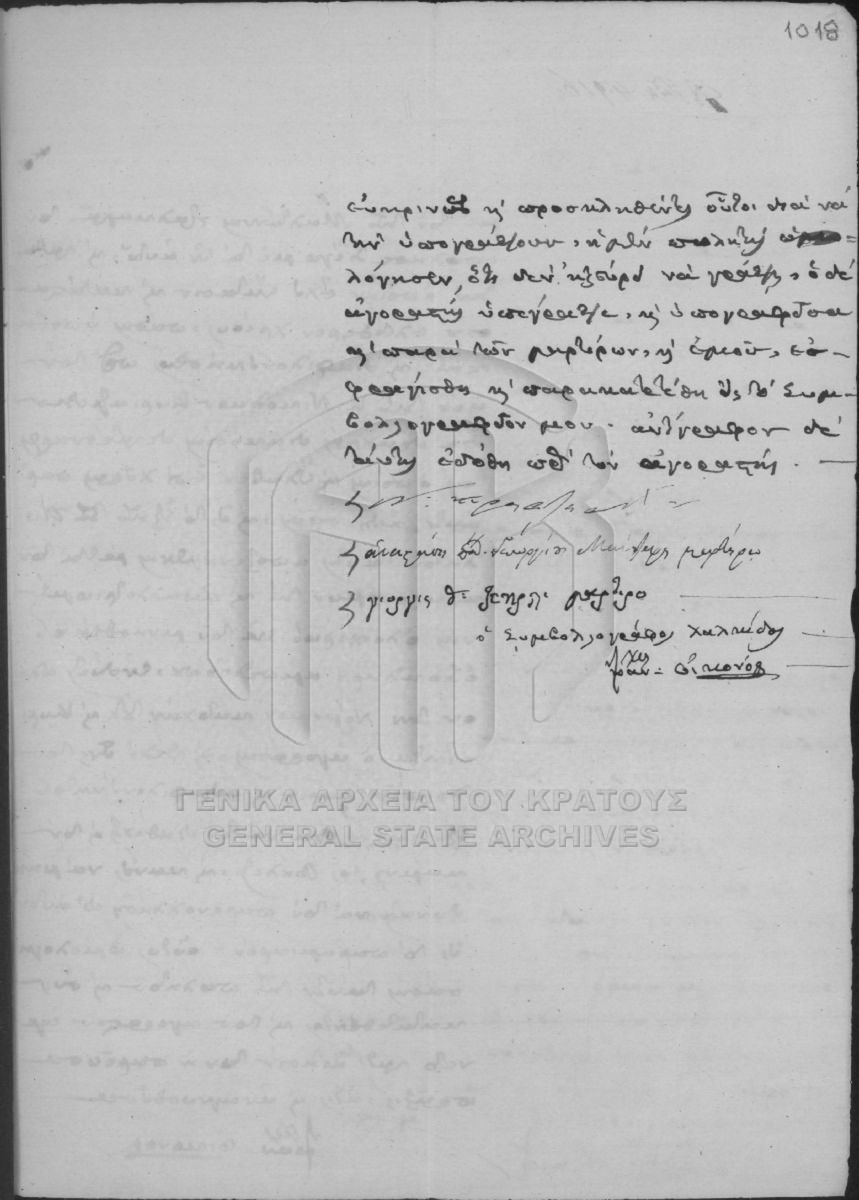 1018
εὐκρινῶς κ̀ προσκληθέντες οὗτοι διὰ νὰ
τὴν ὑπογράψουν, ἡ μὲν πωλητὴς ὡμο-
λόγησεν, ὅτι δὲν ἠξεύρει νὰ γράφῃ, ὁ δὲ
ἀγοραστὴς ὑπέγραψε, κ̀ ὑπογραφεῖσα
κ̀ παρὰ τῶν μαρτύρων, κ̀ ἐμοῦ, ἐσ-
φραγίσθη κ̀ παρακατετέθη εἰς τὸ Συμ-
βολαιογραφεῖον μου. ἀντίγραφον δὲ
ταύτης ἐδόθη πρὸς τὸν ἀγοραστήν.
μαρτυρῶ
γιοργις μαρτιρο
ὁ Συμβολαιογράφος Χαλκίδος
Οἰκονόμ
ΓΕΝΙΚΑ ΑΡΧΕΙΑ ΤΟΥ ΚΡΑΤΟΥΣ
GENERAL STATE ARCHIVES